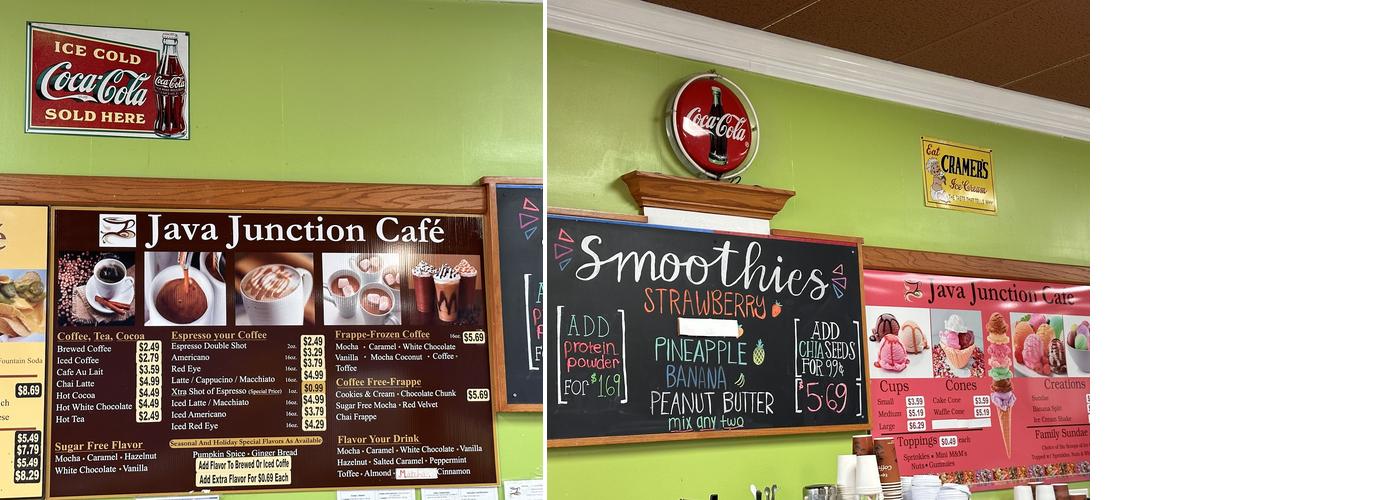 ICE COLD
Coca-Cola
SOLD HERE
Coca-Cola
Fountain Soda
$8.69
$5.49
$7.79
$5.49
$8.29
Java Junction Café
Coffee, Tea, Cocoa
Brewed Coffee $2.49
Iced Coffee $2.79
Cafe Au Lait $3.59
Chai Latte $4.99
Hot Cocoa $4.49
Hot White Chocolate $4.49
Hot Tea $2.49
Sugar Free Flavor
Mocha • Caramel • Hazelnut
White Chocolate • Vanilla
Espresso your Coffee
Espresso Double Shot 2oz. $2.49
Americano 16oz. $3.29
Red Eye 16oz. $3.79
Latte / Cappucino / Macchiato 16oz. $4.99
Xtra Shot of Espresso (Special Price) 1oz. $0.99
Iced Latte / Macchiato 16oz. $4.99
Iced Americano 16oz. $3.79
Iced Red Eye 16oz. $4.29
Seasonal And Holiday Special Flavors As Available
Pumpkin Spice • Ginger Bread
Add Flavor To Brewed Or Iced Coffe
Add Extra Flavor For $0.69 Each
Frappe-Frozen Coffee 16oz. $5.69
Mocha • Caramel • White Chocolate
Vanilla • Mocha Coconut • Coffee •
Toffee
Coffee Free-Frappe
Cookies & Cream • Chocolate Chunk $5.69
Sugar Free Mocha • Red Velvet
Chai Frappe
Flavor Your Drink
Mocha • Caramel • White Chocolate • Vanilla
Hazelnut • Salted Caramel • Peppermint
Toffee • Almond Cinnamon
Coca-Cola
Eat
CRAMER'S
Ice Cream
Smoothies
STRAWBERRY
PINEAPPLE
BANANA
PEANUT BUTTER
mix any two
ADD
protein
powder
FOR $1.69
ADD
CHIA SEEDS
FOR 99¢
$5.69
Java Junction Cafe
Cups
Small $3.59
Medium $5.19
Large $6.29
Cones
Cake Cone $3.59
Waffle Cone $5.19
Creations
Sundae
Banana Split
Ice Cream Shake
Toppings $0.49 each
Sprinkles • Mini M&M's
Nuts • Gummies
Family Sundae